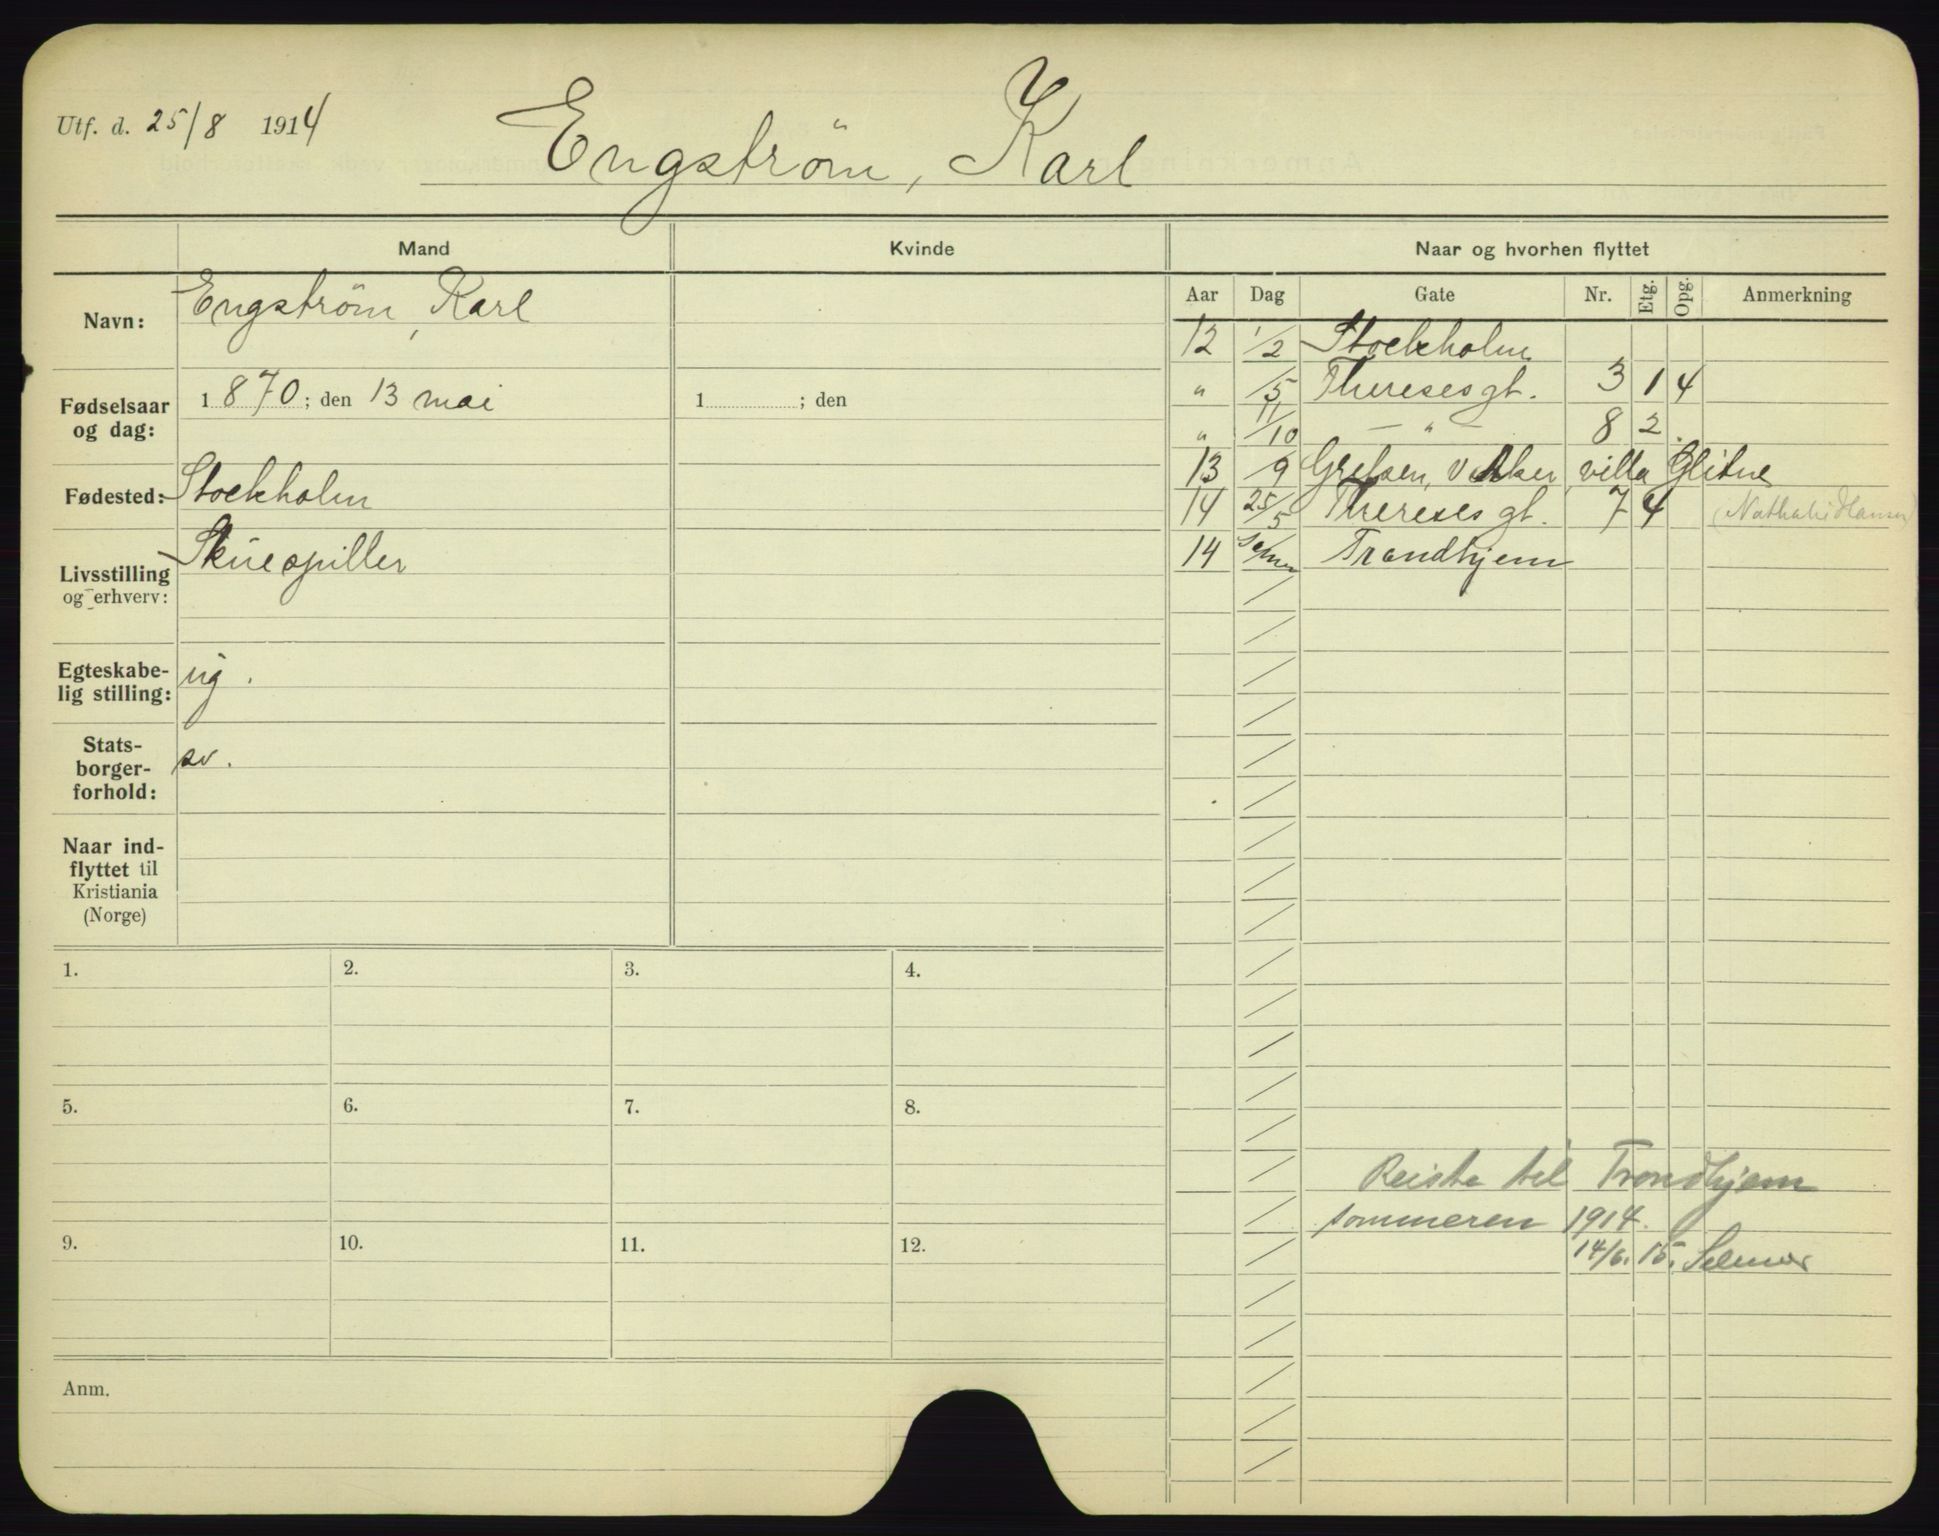 Utf. d. 25/8 1914
Engström, Karl
Mand Kvinde Naar og hvorhen flyttet
Aar Dag Gate Nr. Etg. Opg. Anmerkning
Navn: Engström, Karl
Fødselsaar og dag: 1870; den 13 mai 1 ; den
Fødested: Stockholm
Livsstilling og erhverv: Skuespiller
Egteskabe-
lig stilling: ug.
Stats-
borger-
forhold: sv.
Naar ind-
flyttet til
Kristiania
(Norge)
12 1/2 Stockholm
" /5 Theresesgt. 3 1 4
" 11/10 — " — 8 2
13 /9 Grefsen, V Aker villa Glitne
14 25/5 Theresesgt. 7 4 (Nathalie Hansen)
14 Trondhjem
1. 2. 3. 4.
5. 6. 7. 8.
9. 10. 11. 12.
Reiste til Trondhjem
sommeren 1914.
14/6. 15. Selmer
Anm.